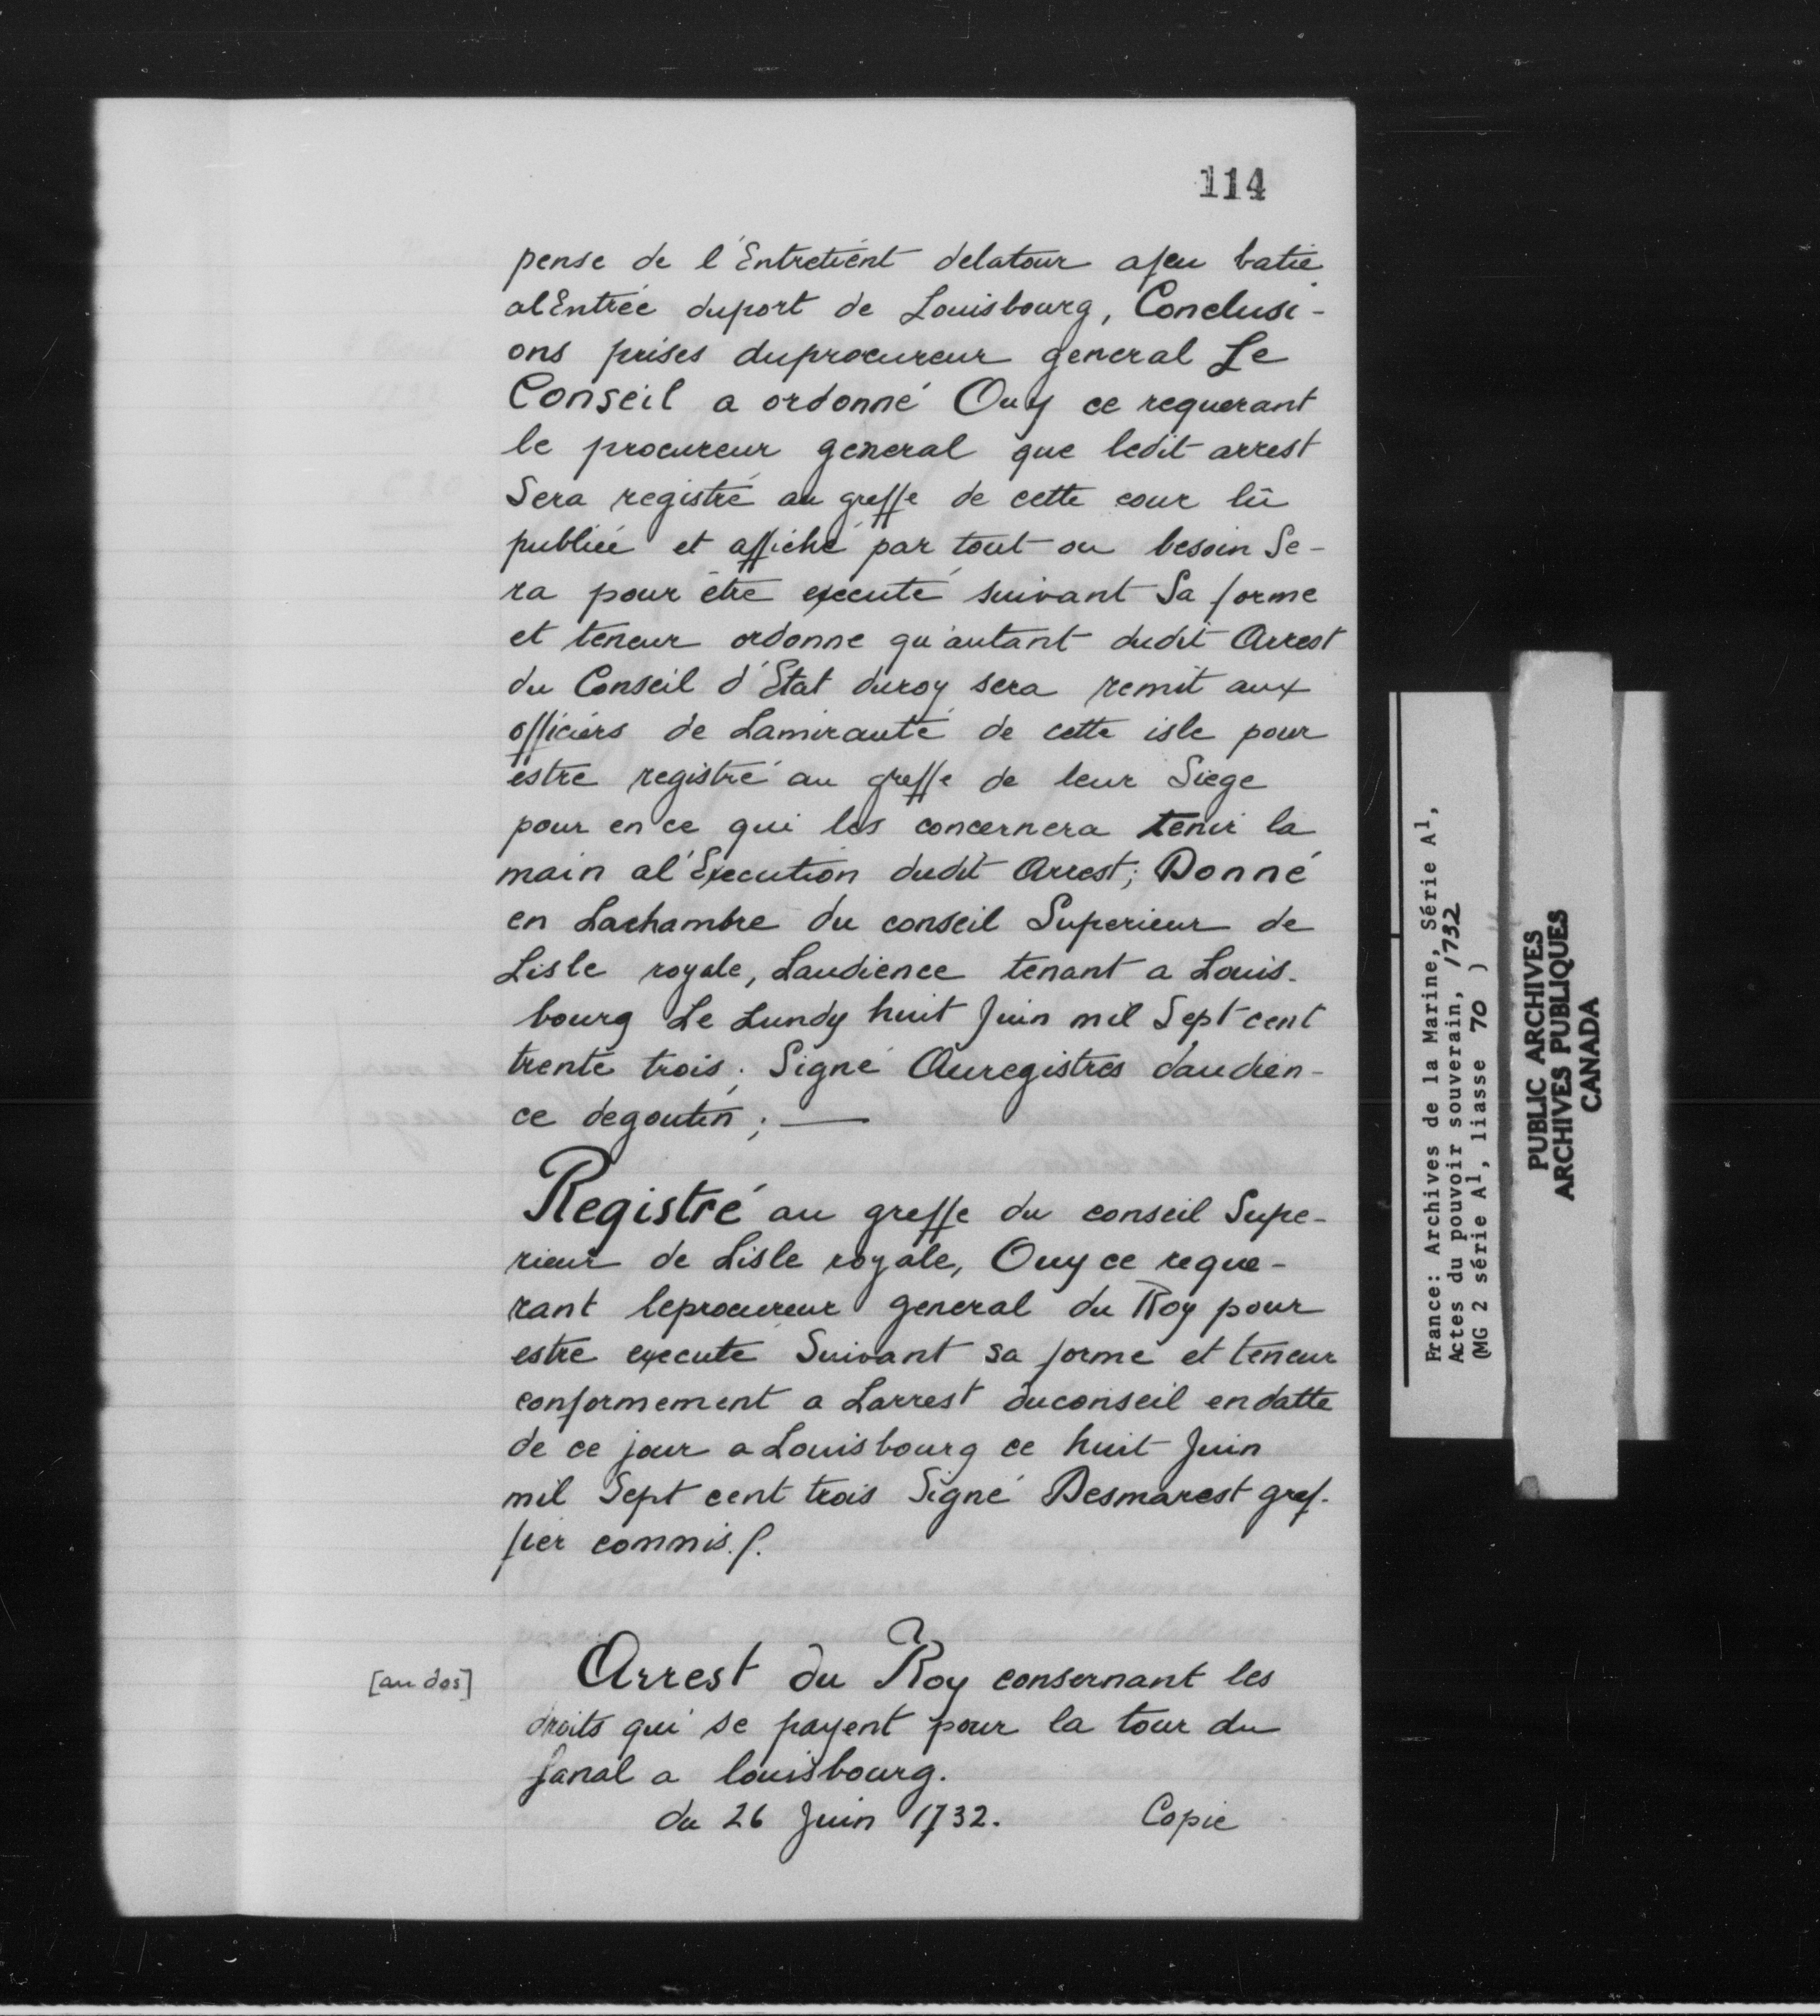 114
pense de l'Entretient delatour afeu batie
alEntrée duport de Louisbourg, Conclusi-
ons prises duprocureur general Le
Conseil a ordonné Ouy ce requerant
le procureur general que ledit arrest
Sera registré au greffe de cette cour lû
publiée et affiché par tout ou besoin Se-
ra pour être executé suivant Sa forme
et teneur ordonne qu'autant dudit Arrest
du Conseil d'Etat duroy sera remit aux
officiers de Lamirauté de cette isle pour
estre registré au greffe de leur Siege
pour en ce qui les concernera tenir la
main al'Execution dudit Arrest; Donné
en Lachambre du conseil Superieur de
Lisle royale, Laudience tenant a Louis-
bourg Le Lundy huit Juin mil Sept cent
trente trois; Signé Auregistres daudien-
ce degoutin; —
Registré au greffe du conseil Supe-
rieur de Lisle royale, Ouy ce reque-
rant leprocureur general du Roy pour
estre executé Suivant sa forme et teneur
conformement a Larrest duconseil endatte
de ce jour a Louisbourg ce huit Juin
mil Sept cent trois Signé Desmarest gref-
fier commis ƒ.
[au dos]
Arrest du Roy consernant les
droits qui se payent pour la tour du
fanal a louisbourg.
du 26 Juin 1732. Copie
France: Archives de la Marine, Série A1,
Actes du pouvoir souverain, 1732
(MG 2 série A1, liasse 70 )
PUBLIC ARCHIVES
ARCHIVES PUBLIQUES
CANADA